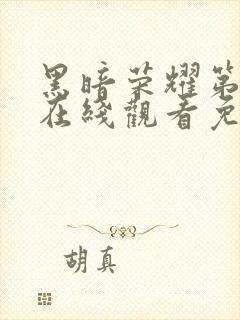 黑暗荣耀第
在线觀看免
胡真